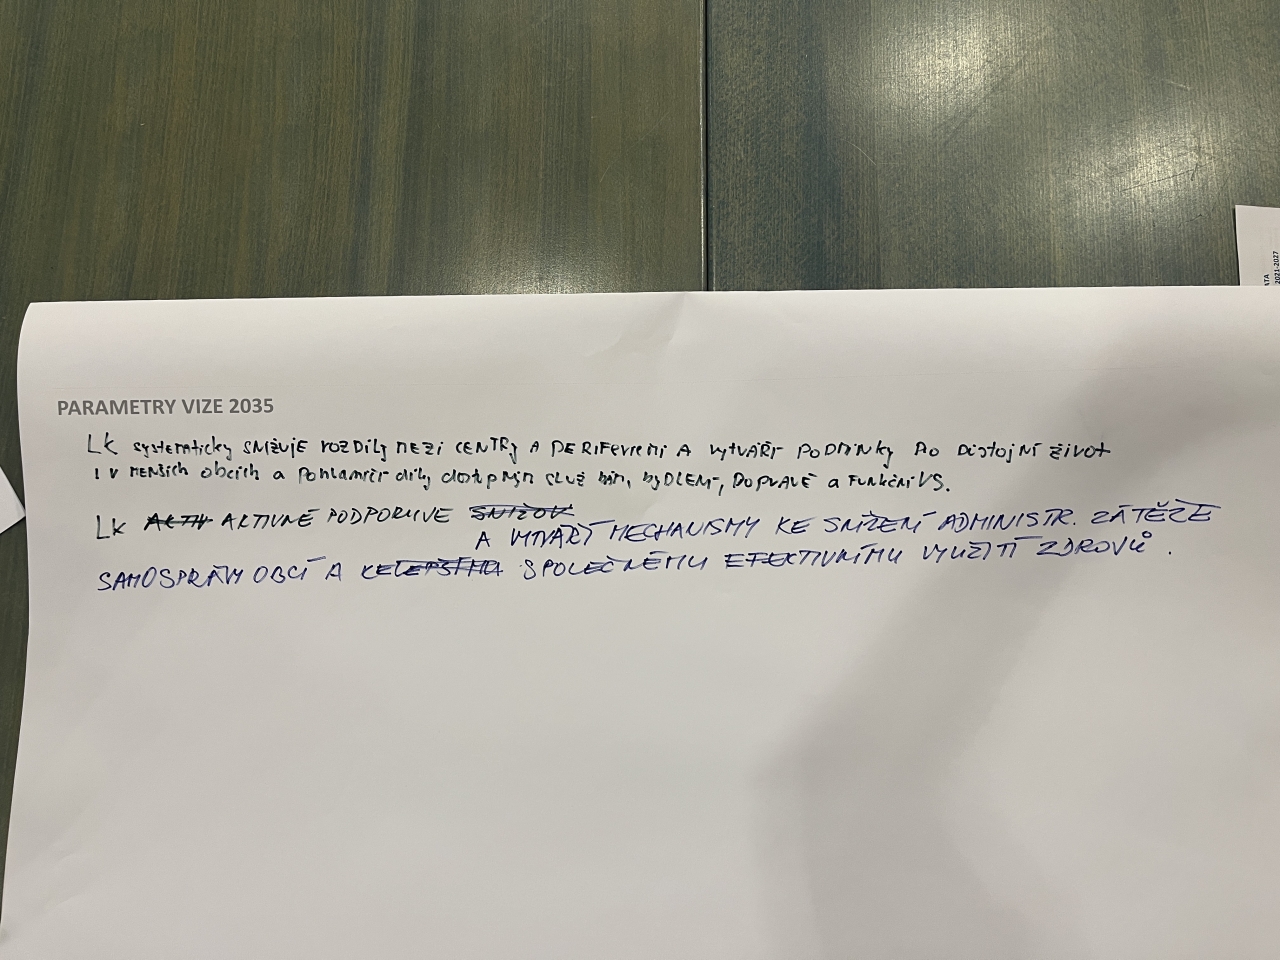 PARAMETRY VIZE 2035
LK systematicky SNIŽUJE ROZDÍLY MEZI CENTRY A PERIFERIEMI A VYTVÁŘÍ PODMÍNKY PRO DŮSTOJNÍ ŽIVOT
I V MENŠÍCH obcích a POHRANIČÍ díky dostupným SLUŽBÁM, BYDLENÍ, DOPRAVĚ a FUNKČNÍ VS.
LK AKTIV AKTIVNĚ PODPORUJE SNIŽOV
A VYTVÁŘÍ MECHANISMY KE SNÍŽENÍ ADMINISTR. ZÁTĚŽE
SAMOSPRÁVY OBCÍ A SPOLEČNÉMU EFEKTIVNÍMU VYUŽITÍ ZDROJŮ.
ATA
2021-2027